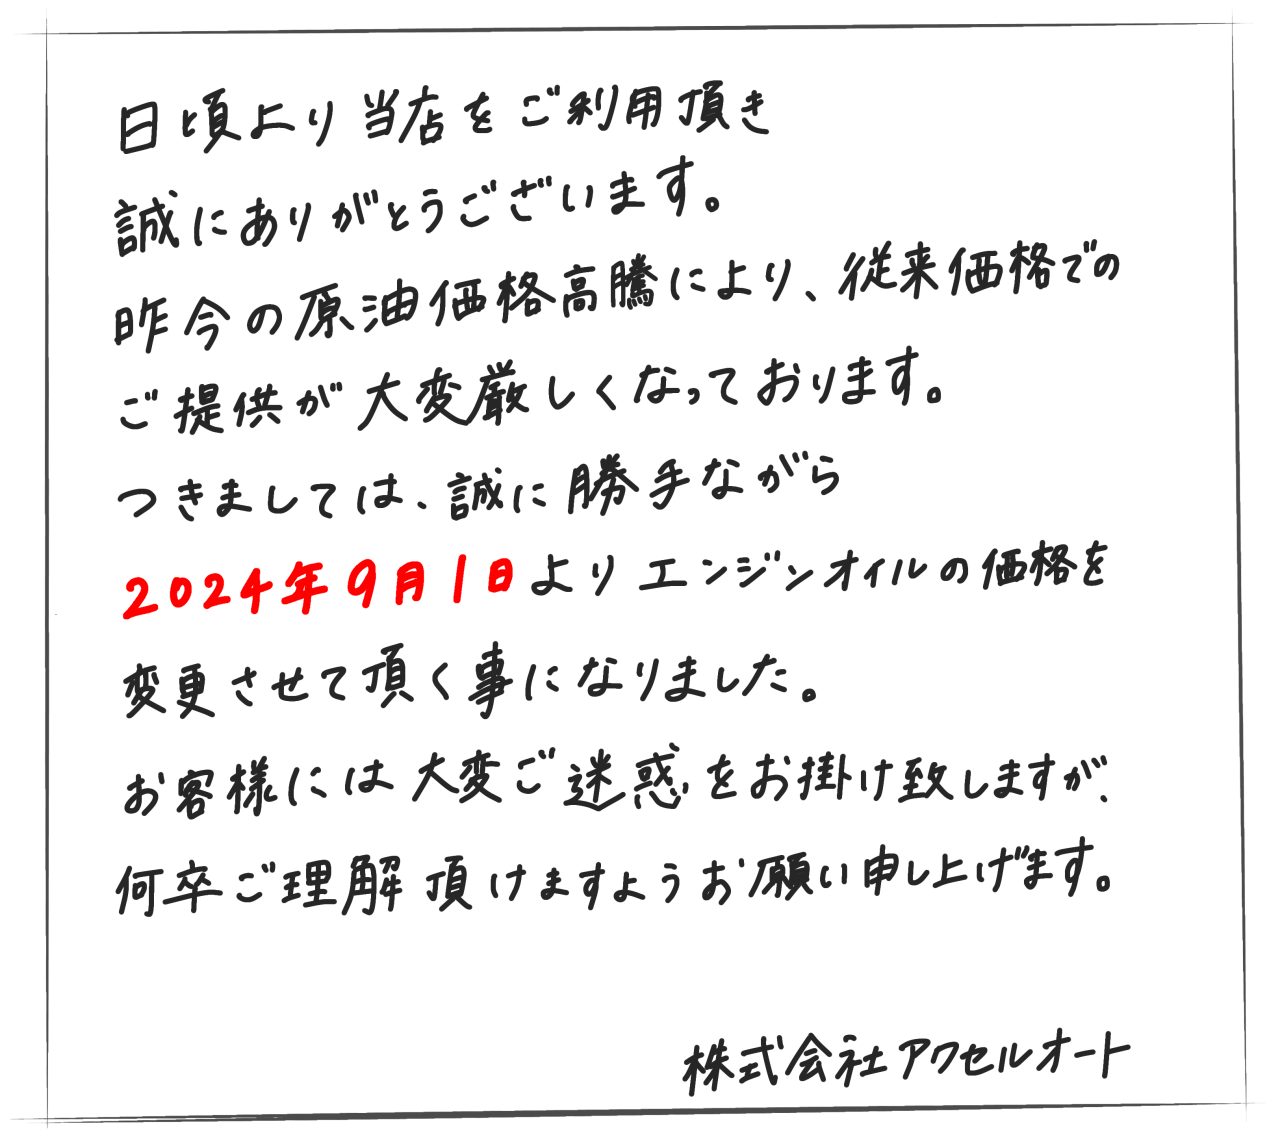 日頃より当店をご利用頂き
誠にありがとうございます。
昨今の原油価格高騰により、従来価格での
ご提供が大変厳しくなっております。
つきましては、誠に勝手ながら
2024年9月1日よりエンジンオイルの価格を
変更させて頂く事になりました。
お客様には大変ご迷惑をお掛け致しますが、
何卒ご理解頂けますようお願い申し上げます。
株式会社アクセルオート